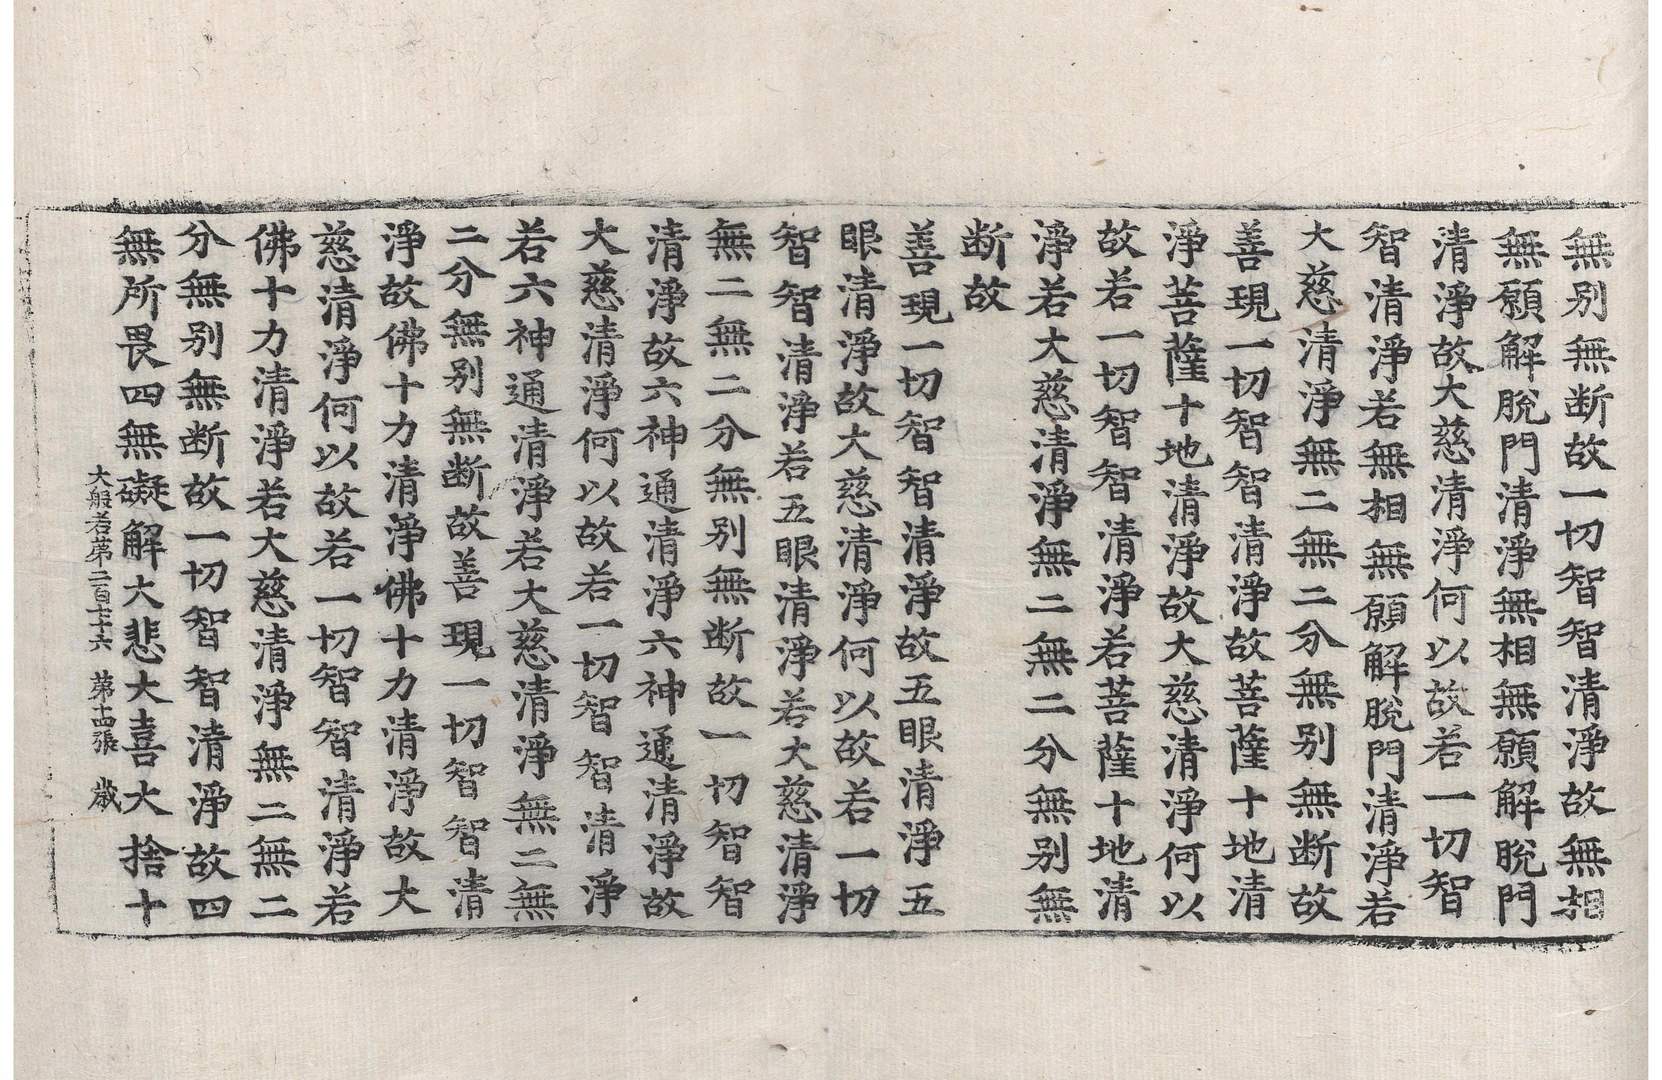 無別無断故一切智智清淨故無相
無願解脫門清淨無相無願解脫門
清淨故大慈清淨何以故若一切智
智清淨若無相無願解脫門清淨若
大慈清淨無二無二分無別無断故
善現一切智智清淨故菩薩十地清
淨菩薩十地清淨故大慈清淨何以
故若一切智智清淨若菩薩十地清
淨若大慈清淨無二無二分無別無
断故
善現一切智智清淨故五眼清淨五
眼清淨故大慈清淨何以故若一切
智智清淨若五眼清淨若大慈清淨
無二無二分無別無断故一切智智
清淨故六神通清淨六神通清淨故
大慈清淨何以故若一切智智清淨
若六神通清淨若大慈清淨無二無
二分無別無断故善現一切智智清
淨故佛十力清淨佛十力清淨故大
慈清淨何以故若一切智智清淨若
佛十力清淨若大慈清淨無二無二
分無別無断故一切智智清淨故四
無所畏四無礙解大悲大喜大捨十
大般若第二百七十六 第十四張 歲